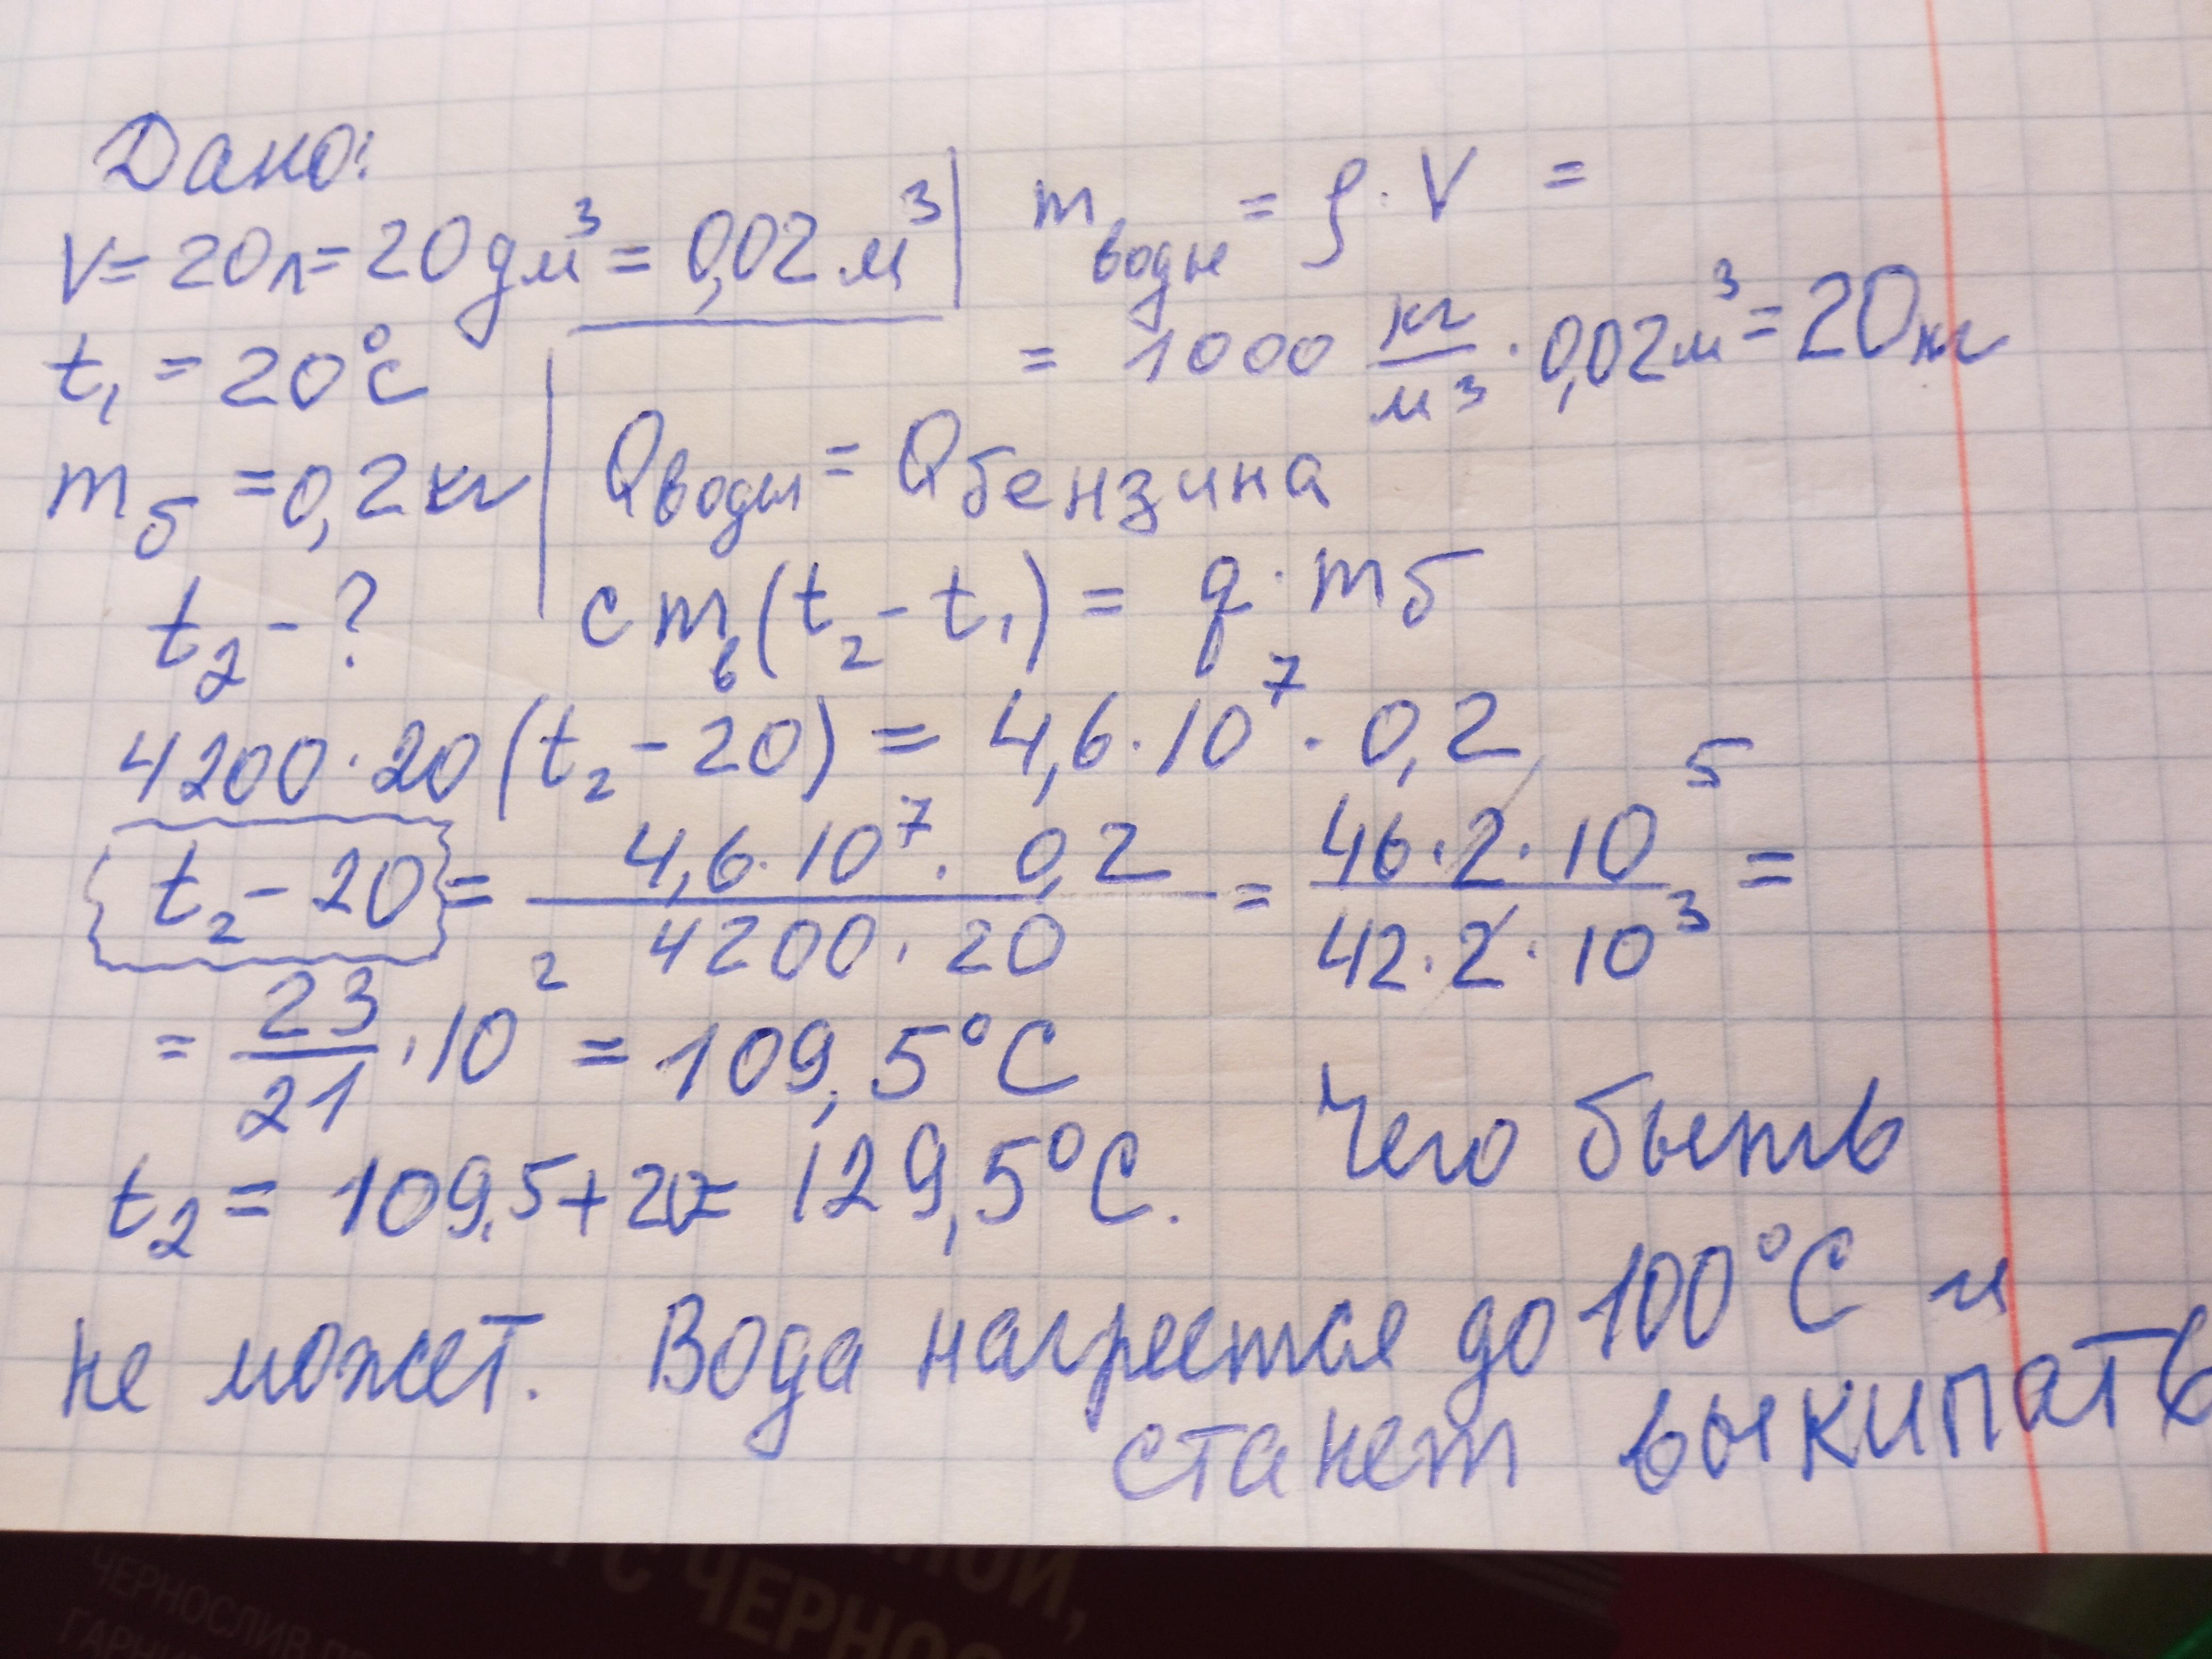 Дано:
V = 20л = 20 дм³ = 0,02 м³
m воды = ρ · V =
= 1000 кг/м³ · 0,02м³ = 20кг
t₁ = 20°C
m б = 0,2 кг
t₂ - ?
Qводы = Qбензина
c mв (t₂ - t₁) = q · mб
4200 · 20 (t₂ - 20) = 4,6 · 10⁷ · 0,2
t₂ - 20 = 4,6 · 10⁷ · 0,2 / 4200 · 20 = 46 · 2 · 10⁵ / 42 · 2 · 10³ =
= 23/21 · 10² = 109,5°C
t₂ = 109,5 + 20 = 129,5°C. Чего быть
не может. Вода нагреется до 100°C и
станет выкипать
НОЙ,
И С ЧЕРНОС
ЧЕРНОСЛИВ